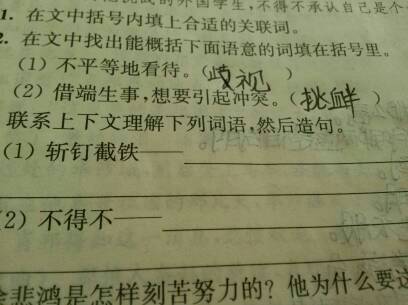 的外国学生，不得不承认自己是个
1. 在文中括号内填上合适的关联词。
2. 在文中找出能概括下面语意的词填在括号里。
(1) 不平等地看待。(歧视)
(2) 借端生事，想要引起冲突。(挑衅)
联系上下文理解下列词语，然后造句。
(1) 斩钉截铁——
(2) 不得不——
悲鸿是怎样刻苦努力的？他为什么要这